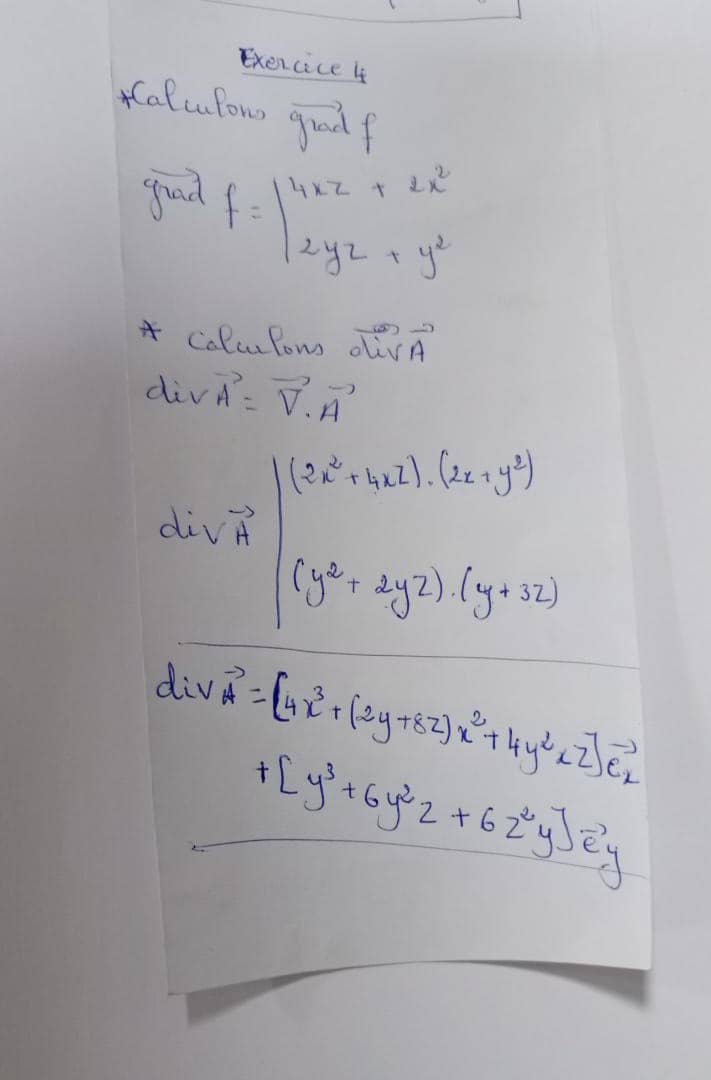 Exercice 4
*Calculons grad f
grad f = | 4xz + 2x²
| 2yz + y²
* Calculons div A
div A = ∇ . A
| (2x² + 4xz) . (2x + y²)
div A
| (y² + 2yz) . (y + 3z)
div A = [4x³ + (2y + 8z) x² + 4y² x z] e_x
+ [y³ + 6y² z + 6 z² y] e_y